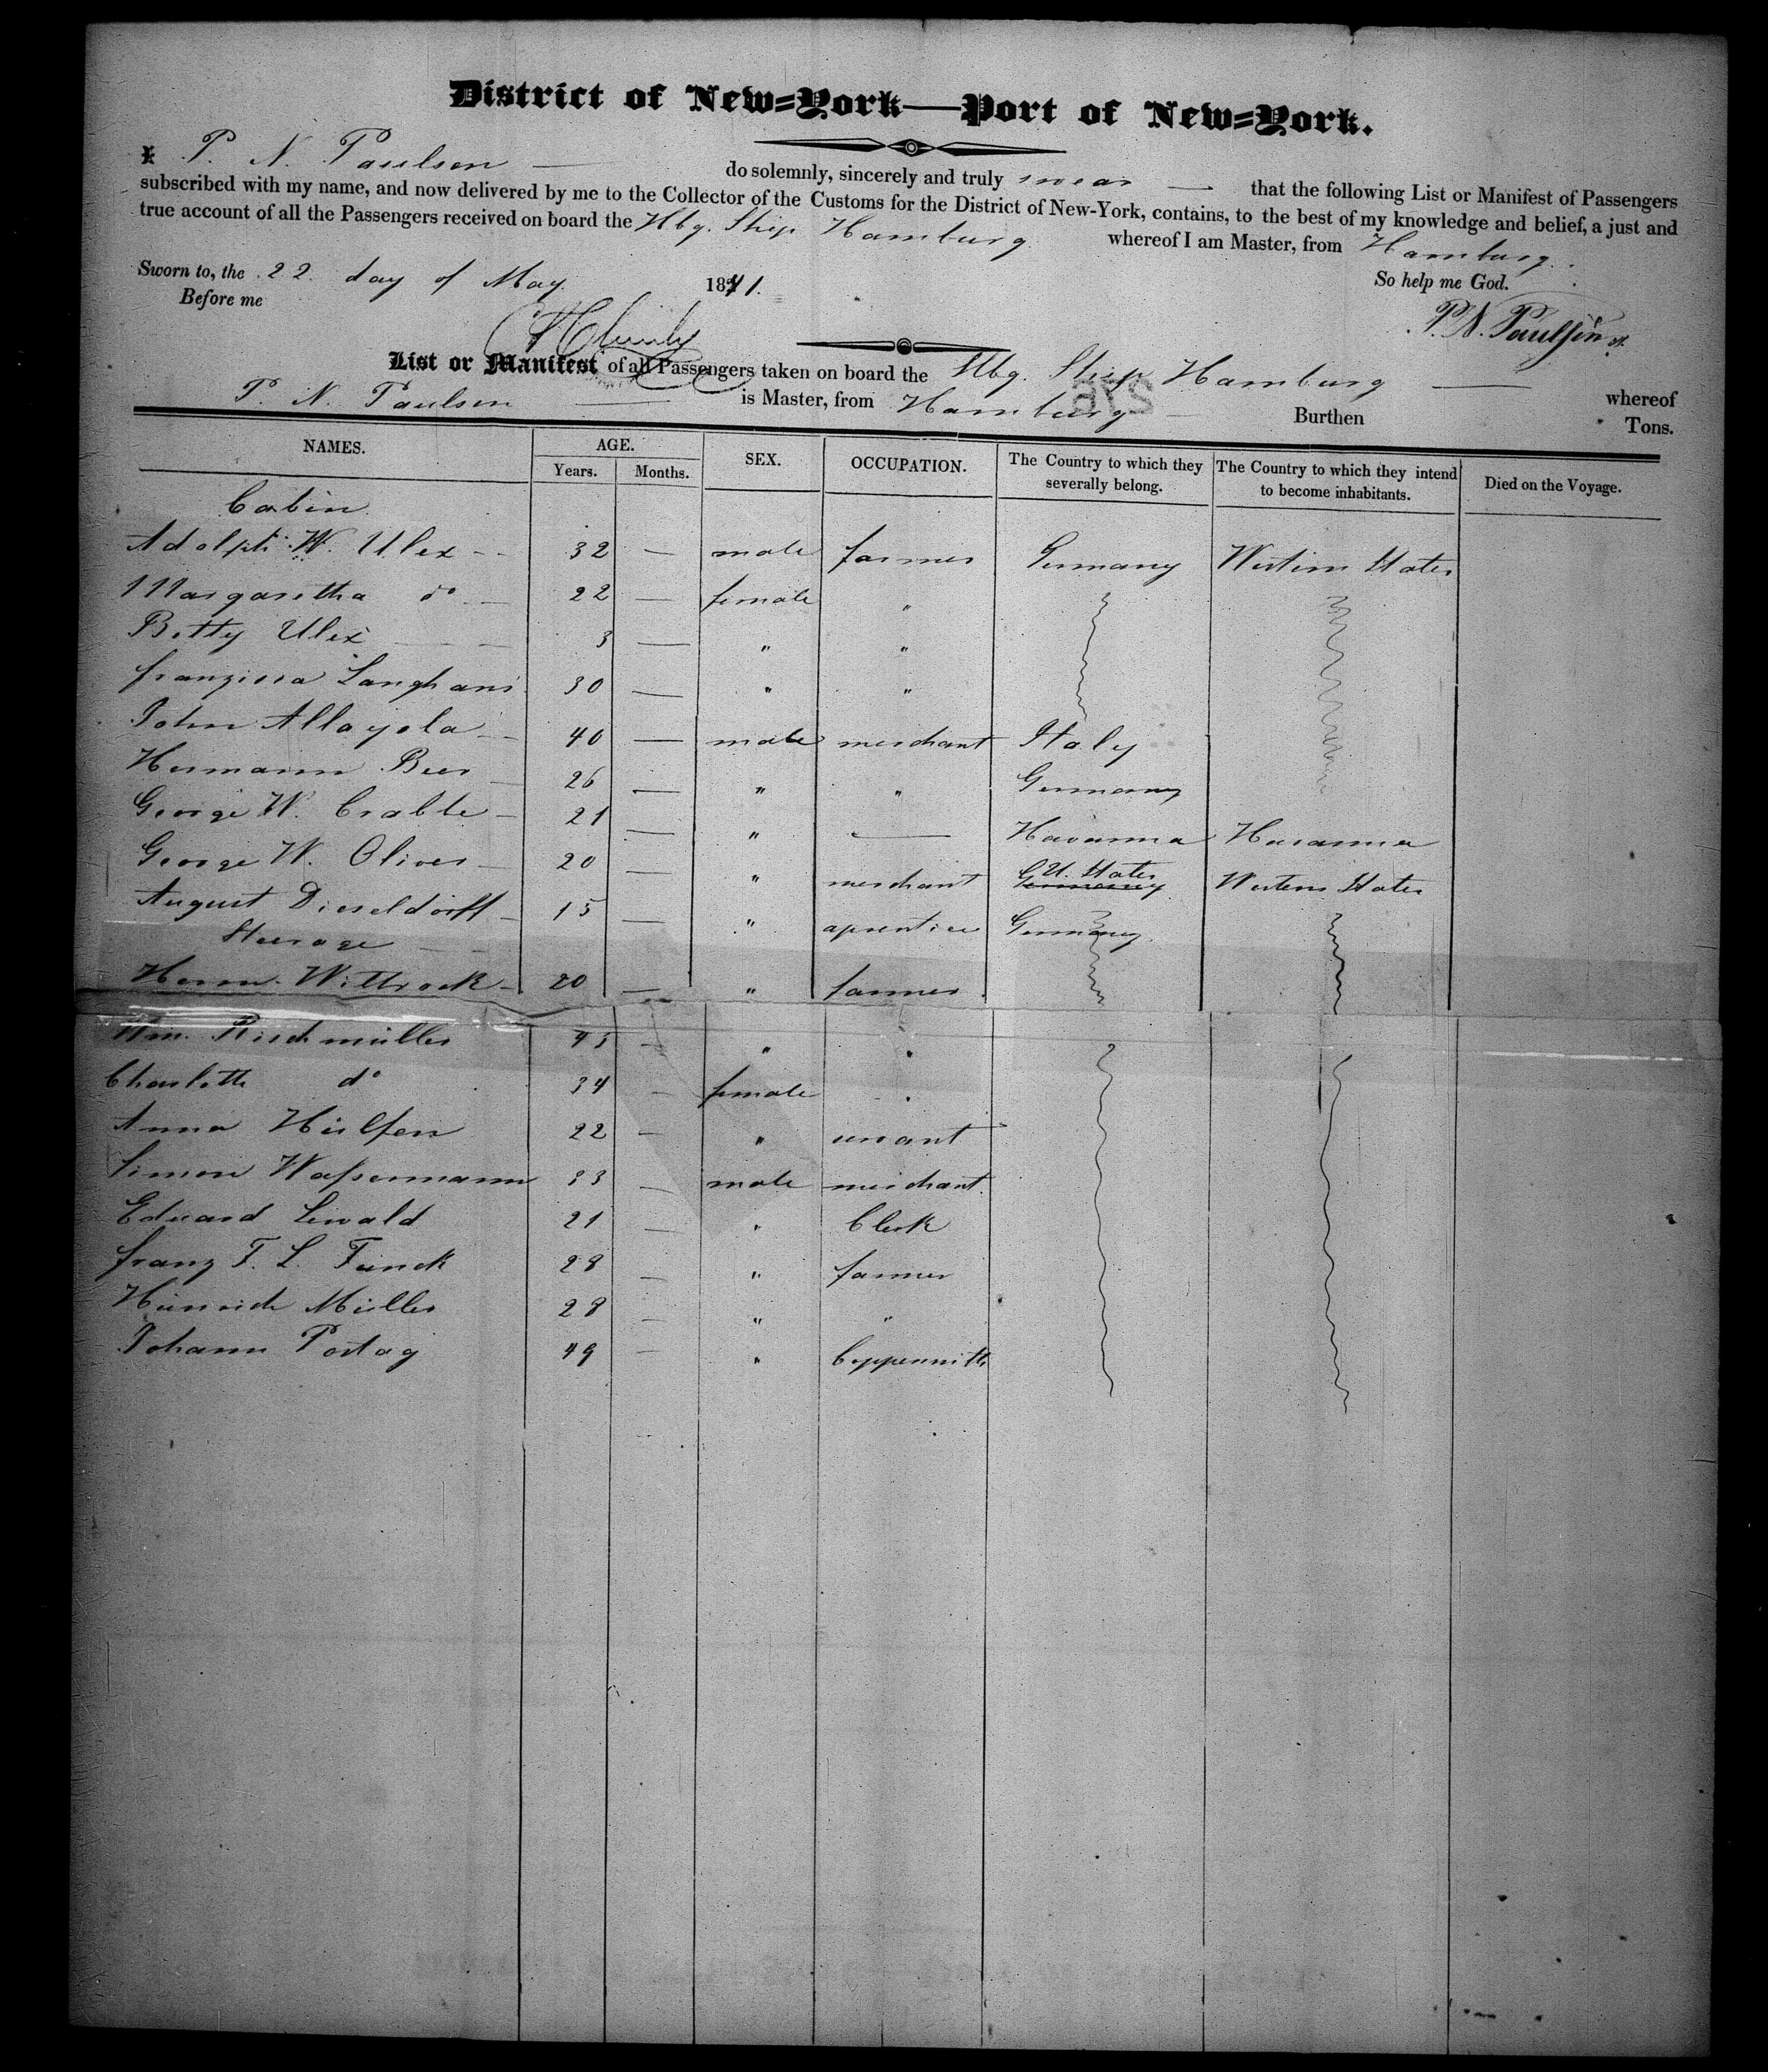 District of New=York—Port of New=York.
I, P. N. Paulsen — do solemnly, sincerely and truly swear — that the following List or Manifest of Passengers
subscribed with my name, and now delivered by me to the Collector of the Customs for the District of New-York, contains, to the best of my knowledge and belief, a just and
true account of all the Passengers received on board the Hbg. Ship Hamburg whereof I am Master, from Hamburg.
Sworn to, the 22 day of May 1841. So help me God.
Before me
P. N. Paulsen
List or Manifest of all Passengers taken on board the Hbg. Ship Hamburg — whereof
P. N. Paulsen — is Master, from Hamburg — Burthen Tons.
NAMES. AGE. Years. Months. SEX. OCCUPATION. The Country to which they severally belong. The Country to which they intend to become inhabitants. Died on the Voyage.
Cabin
Adolph W. Ulex - - 32 — male farmer Germany Western States
Margaretha do — 22 — female "
Betty Ulex — 3 — " "
Franzisca Langhans 30 — " "
John Allayola — 40 — male merchant Italy
Hermann Beer — 26 — " " Germany
George W. Crabbe — 21 — " — Havanna Havanna
George W. Oliver — 20 — " merchant Germany U. States Western States
August Dieseldorff — 15 — " aprentice Germany
Steerage
Herm. Wittrock — 20 — " farmer
Wm. Rischmüller 45 — " "
Charlotte do 34 — female "
Anna 22 — " servant
Simon Wassermann 33 — male merchant
Eduard Lewald 21 — " Clerk
Franz F. L. Funck 28 — " farmer
Heinrich Müller 28 — " "
Johann Postag 49 — " Coppersmith